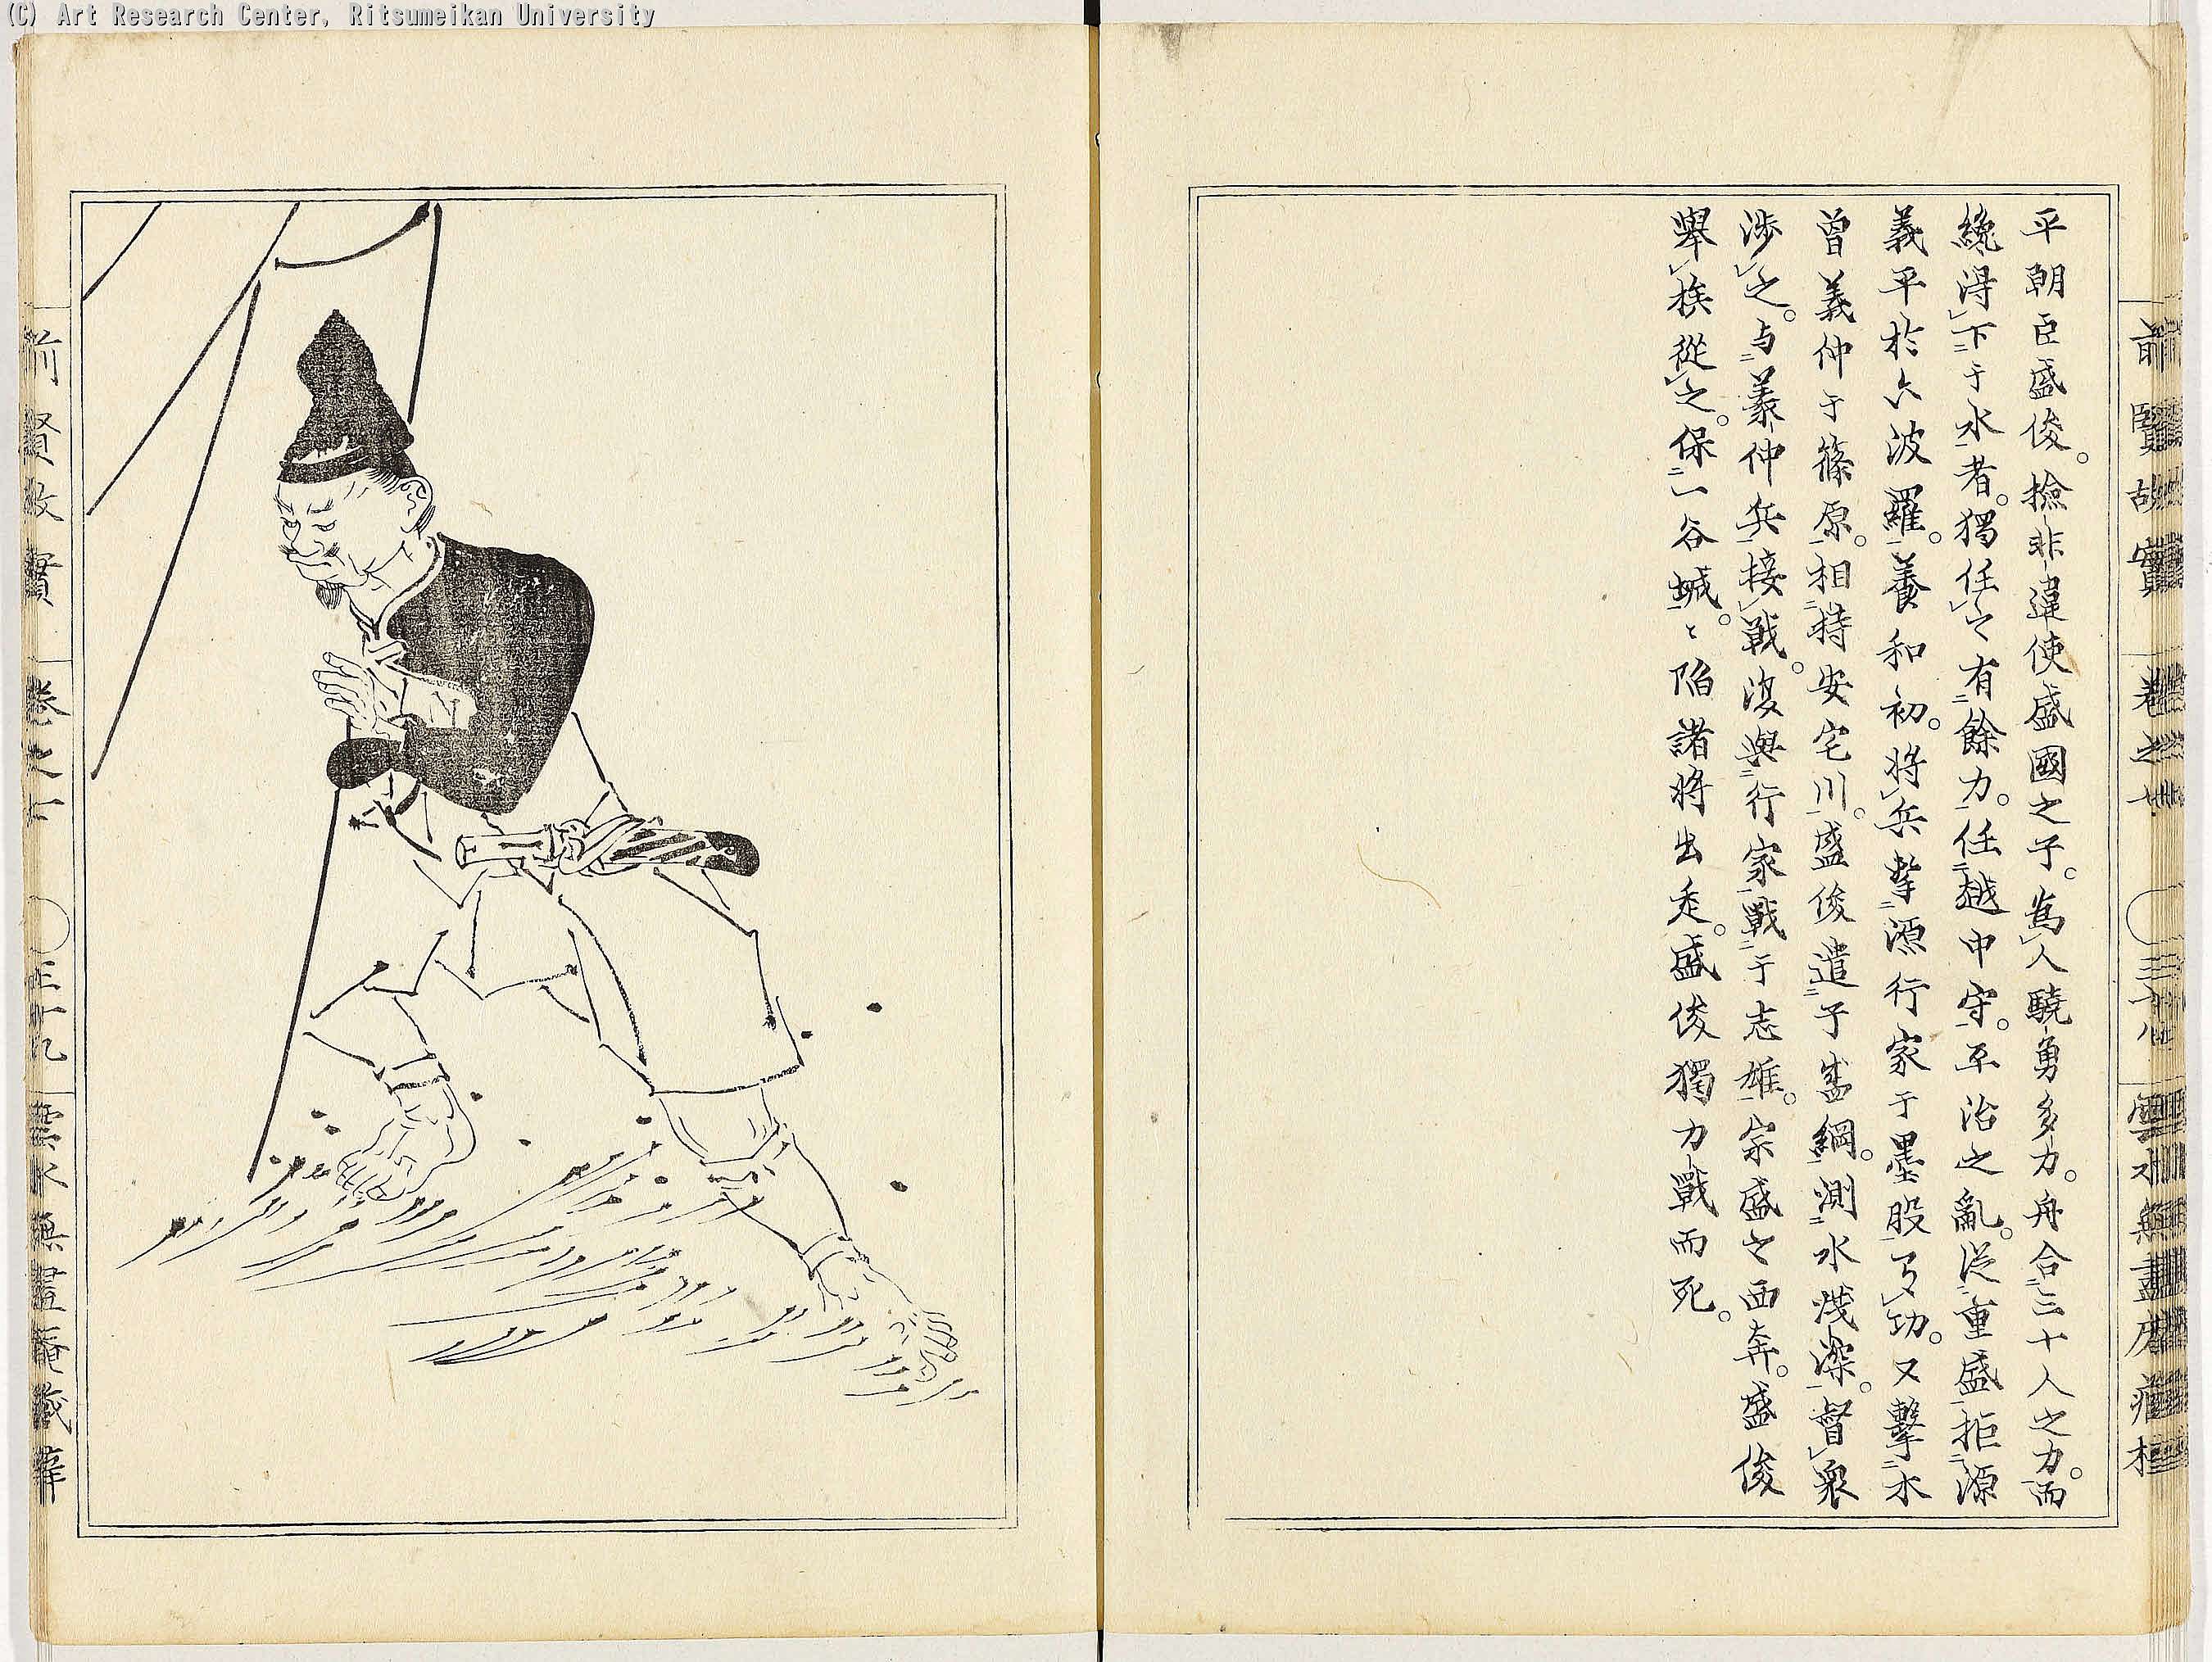 (C) Art Research Center, Ritsumeikan University
平朝臣盛俊。撿非違使盛國之子。爲人驍勇多力。舟合三十人之力。而
纔得下于水者。獨任之有餘力。任越中守。平治之亂。從重盛拒源
義平於六波羅。養和初。將兵撃源行家于墨股有功。又擊木
曾義仲于篠原。相持安宅川。盛俊遣子盛綱。測水浅深。督衆
渉之。与義仲兵接戦。復與行家戰于志雄。宗盛之西奔。盛俊
舉族從之。保一谷城。〻陥諸将出走。盛俊獨力戰而死。
前賢故實 卷之七 三十九 雲水無盡庵藏